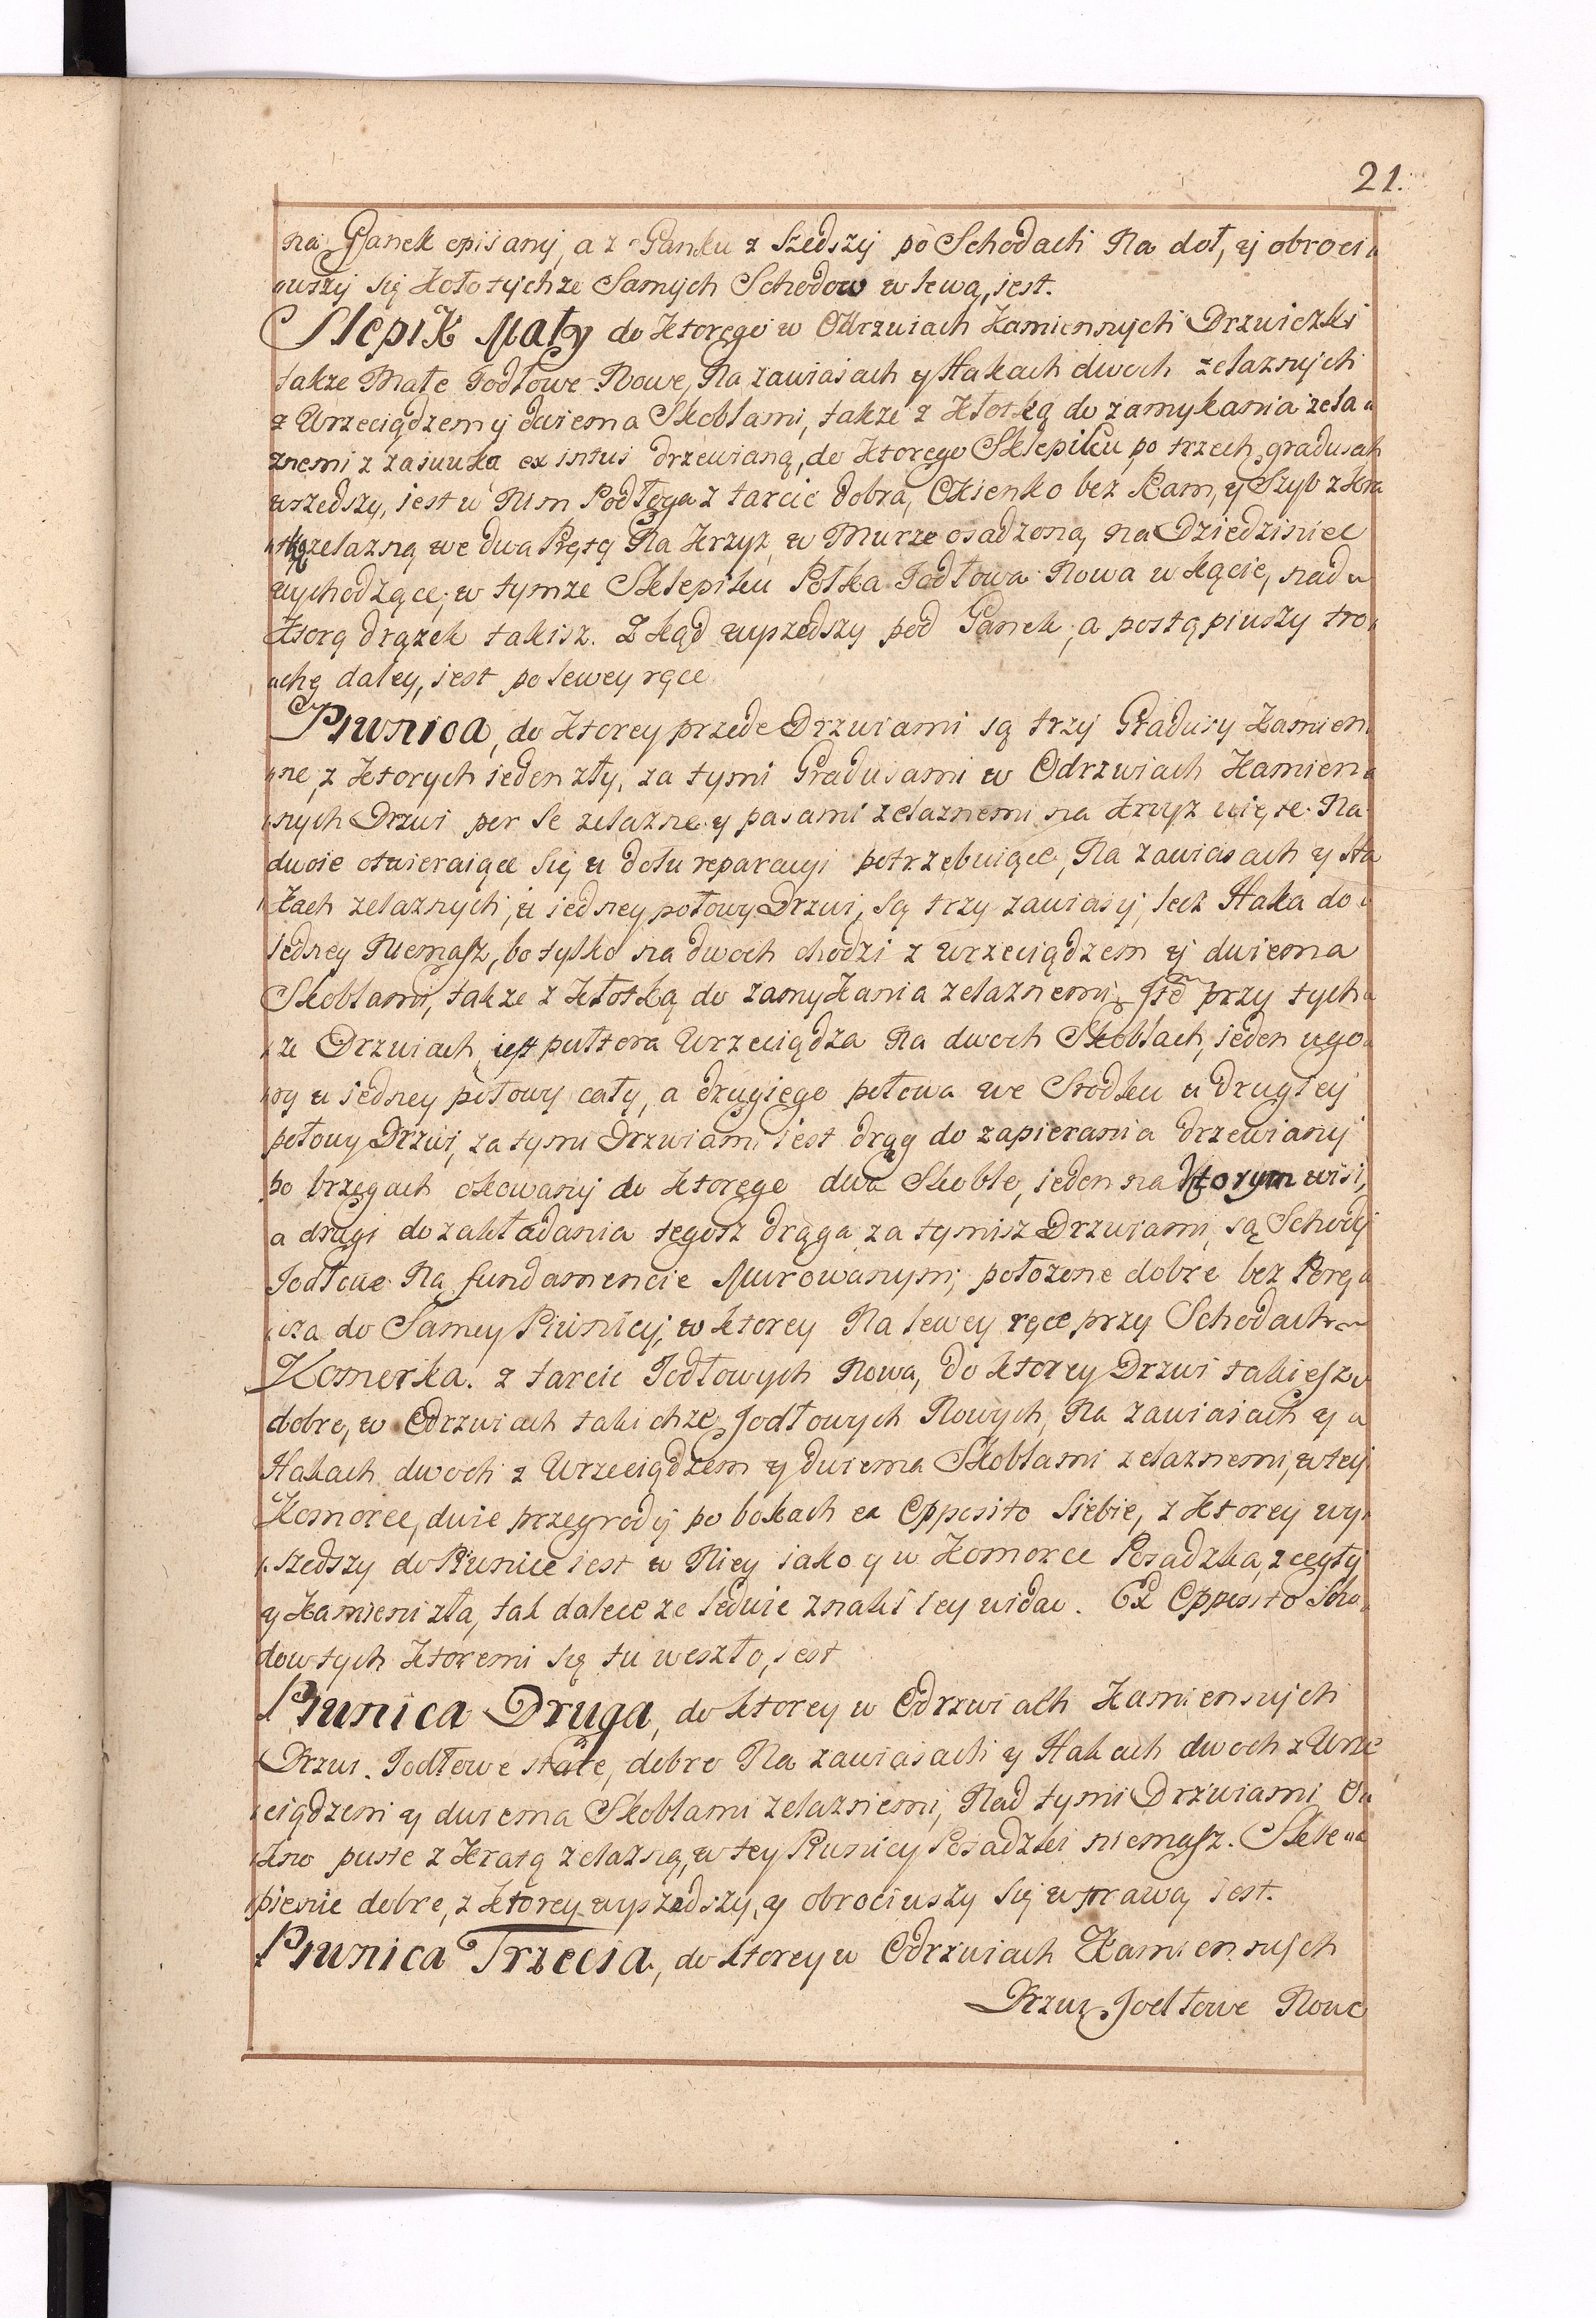 21.
na Ganek opisany, a z Ganku z Szedszy po Schodach Na doł, y obroci„
„wszy Się Koło tychze Samych Schodow w lewą, jest.
Slepik Mały do Ktorego w Odrzwiach Kamiennych Drzwiczki
także Małe Jodłowe Nowe, Na zawiasach y Hakach dwoch żelaznych
z Wrzeciądzem y dwiema Skoblami, także z Kłotką do zamykania żela„
znemi z zasuwką ex intus drzewianą, do Ktorego Sklepiku po trzech gradusach
wszedszy, jest w Nim Podłoga z tarcic dobra, Okienko bez Ram, y Szyb z Kra
„tką żelazną we dwa Pręty Na Krzyż w Murze osadzoną na Dziedziniec
wychodzące, w tymże Sklepiku Połka Jodłowa Nowa w kącie, nad„
Ktorą drążek takisz. Z kąd wyszedszy pod Ganek, a postąpiwszy tro„
„chę daley, jest po lewey ręce
Piwnica, do Ktorey przede Drzwiami są trzy Gradusy Kamien„
„ne, z Ktorych jeden zły, za tymi Gradusami w Odrzwiach Kamien„
„nych Drzwi per Se żelazne y pasami żelaznemi na Krzyż
dwoie otwieraiące Się u dołu reparacyi potrzebuiące, Na zawiasach y Ha
kach żelaznych, u jedney połowy Drzwi, Są trzy zawiasy, lecz Haka do„
jedney Niemasz, bo tylko na dwoch chodzi z wrzeciądzem y dwiema
Skoblami, także z Kłotką do zamykania żelaznemi, Ite przy tych„
„że Drzwiach jest pułtora Wrzeciądza Na dwoch Skoblach, jeden ugo„
„ry u jedney połowy cały, a drugiego połowa we Srodku u drugiey
połowy Drzwi, za tymi Drzwiami jest drąg do zapierania drzewiany
po brzegach okowany do Ktorego dwa Skoble, jeden na Ktorym wisi,
a drugi do zakładania tegosz drąga, za tymisz Drzwiami, są Schody
Jodłowe Na fundamencie Murowanym, położone dobre bez Porę„
„cza do Samey Piwnicy, w Ktorey Na lewey ręce przy Schodach
Komorka z tarcic Jodłowych Nowa, do Ktorey Drzwi takiesz
dobre, w Odrzwiach takichże Jodłowych Nowych, Na zawiasach y
Hakach dwoch z Wrzeciądzem y dwiema Skoblami żelaznemi, w tey
Komorce, dwie przegrody po bokach ex Opposito Siebie, z Ktorey wy„
„szedszy do Piwnice jest w Niey iako y w Komorce Posadzka, z cegły
y Kamieni zła, tak dalece że ledwie znaki iey widać. Ex Opposito Scho„
dow tych Ktoremi Się tu weszło, jest
Piwnica Druga, do Ktorey w Odrzwiach Kamiennych
Drzwi Jodłowe stare, dobre Na zawiasach y Hakach dwoch z Wrze
„ciądzem y dwiema Skoblami żelaznemi, Nad tymi Drzwiami Ok„
„kno puste z Kratą żelazną, w tey Piwnicy Posadzki niemasz. Skle„
„pienie dobre, z Ktorey wyszedszy, y obrociwszy Się w prawą jest.
Piwnica Trzecia, do Ktorey w Odrzwiach Kamiennych
Drzwi Jodłowe Nowe